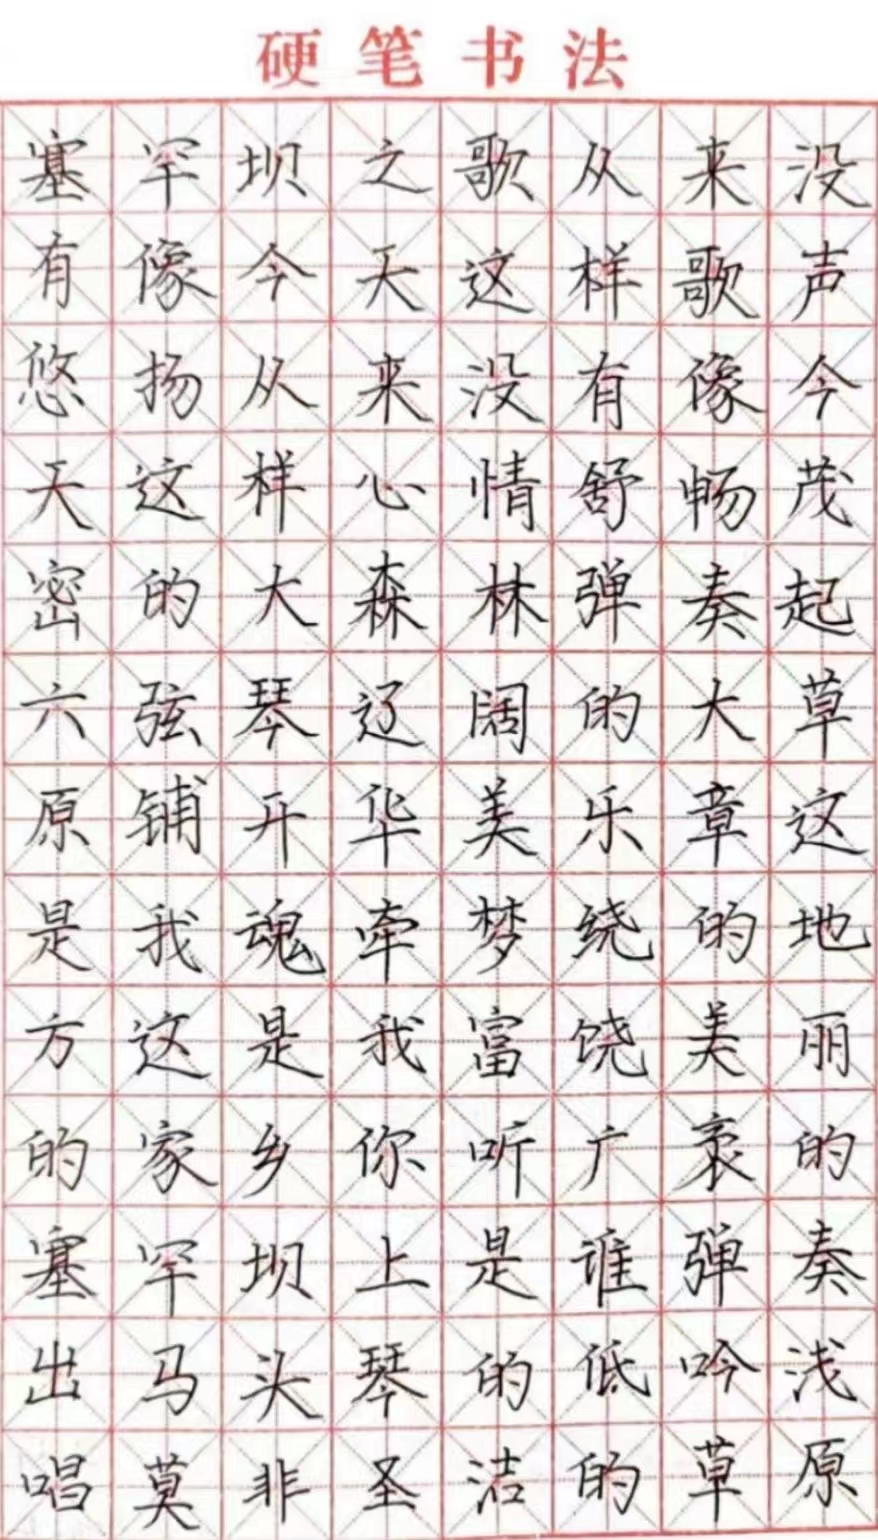 硬笔书法
塞罕坝之歌从来没
有像今天这样歌声
悠扬从来没有像今
天这样心情舒畅茂
密的大森林弹奏起
六弦琴辽阔的大草
原铺开华美乐章这
是我魂牵梦绕的地
方这是我富饶美丽
的家乡你听广袤的
塞罕坝上是谁弹奏
出马头琴的低吟浅
唱莫非圣洁的草原